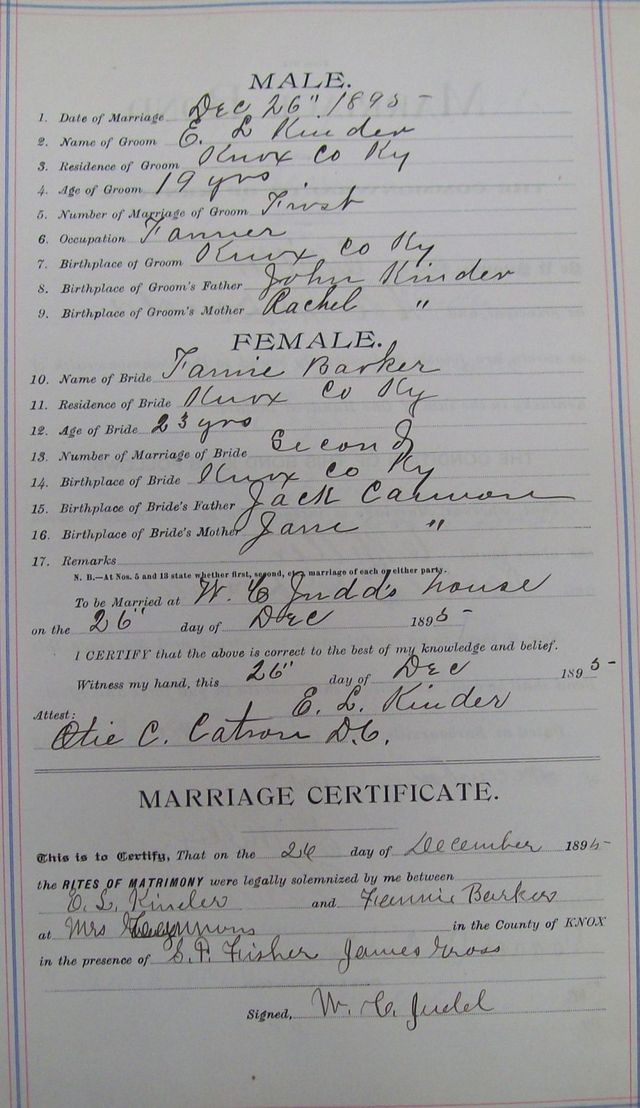 MALE.
1. Date of Marriage Dec 26" 1895
2. Name of Groom E. L Kinder
3. Residence of Groom Knox Co Ky
4. Age of Groom 19 yrs
5. Number of Marriage of Groom First
6. Occupation Farmer
7. Birthplace of Groom Knox Co Ky
8. Birthplace of Groom's Father John Kinder
9. Birthplace of Groom's Mother Rachel "
FEMALE.
10. Name of Bride Fannie Barker
11. Residence of Bride Knox Co Ky
12. Age of Bride 23 yrs
13. Number of Marriage of Bride Second
14. Birthplace of Bride Knox Co Ky
15. Birthplace of Bride's Father Jack
16. Birthplace of Bride's Mother Jane "
17. Remarks
N. B.—At Nos. 5 and 13 state whether first, second, etc., marriage of each or either party.
To be Married at W. C Judd's house
on the 26" day of Dec 1895
I CERTIFY that the above is correct to the best of my knowledge and belief.
Witness my hand, this 26" day of Dec 1895
E. L. Kinder
Attest:
Otie C. Catron D.C.
MARRIAGE CERTIFICATE.
This is to Certify, That on the 26 day of December 1895
the RITES OF MATRIMONY were legally solemnized by me between
E. L. Kinder and Fannie Barker
at Mrs in the County of KNOX
in the presence of S. P. Fisher James Gross
Signed, W. C. Judd